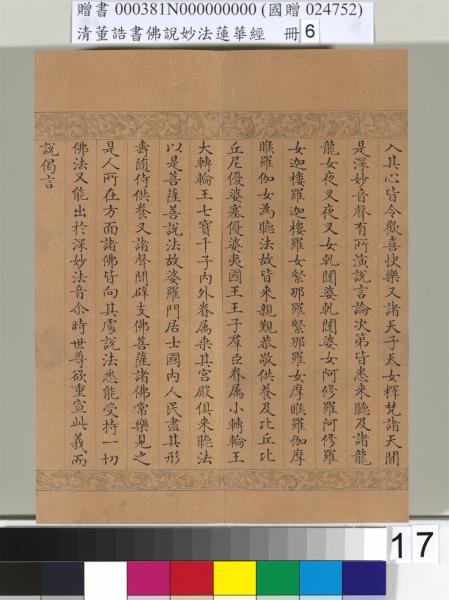 贈書 000381N000000000 (國贈 024752)
清董誥書佛說妙法蓮華經 冊 6
入其心皆令歡喜快樂又諸天子天女釋梵諸天聞
是深妙音聲有所演說言論次第皆悉來聽及諸龍
龍女夜叉夜叉女乹闥婆乹闥婆女阿修羅阿修羅
女迦樓羅迦樓羅女緊那羅緊那羅女摩睺羅伽摩
睺羅伽女為聽法故皆来親覲恭敬供養及比丘比
丘尼優婆塞優婆夷國王王子羣臣眷属小轉輪王
大轉輪王七寶千子內外眷属乘其宮殿俱来聽法
以是菩薩善說法故婆羅門居士國內人民盡其形
壽隨侍供養又諸聲聞辟支佛菩薩諸佛常樂見之
是人所在方面諸佛皆向其處說法悉能受持一切
佛法又能出於深妙法音尒時世尊欲重宣此義而
說偈言
17